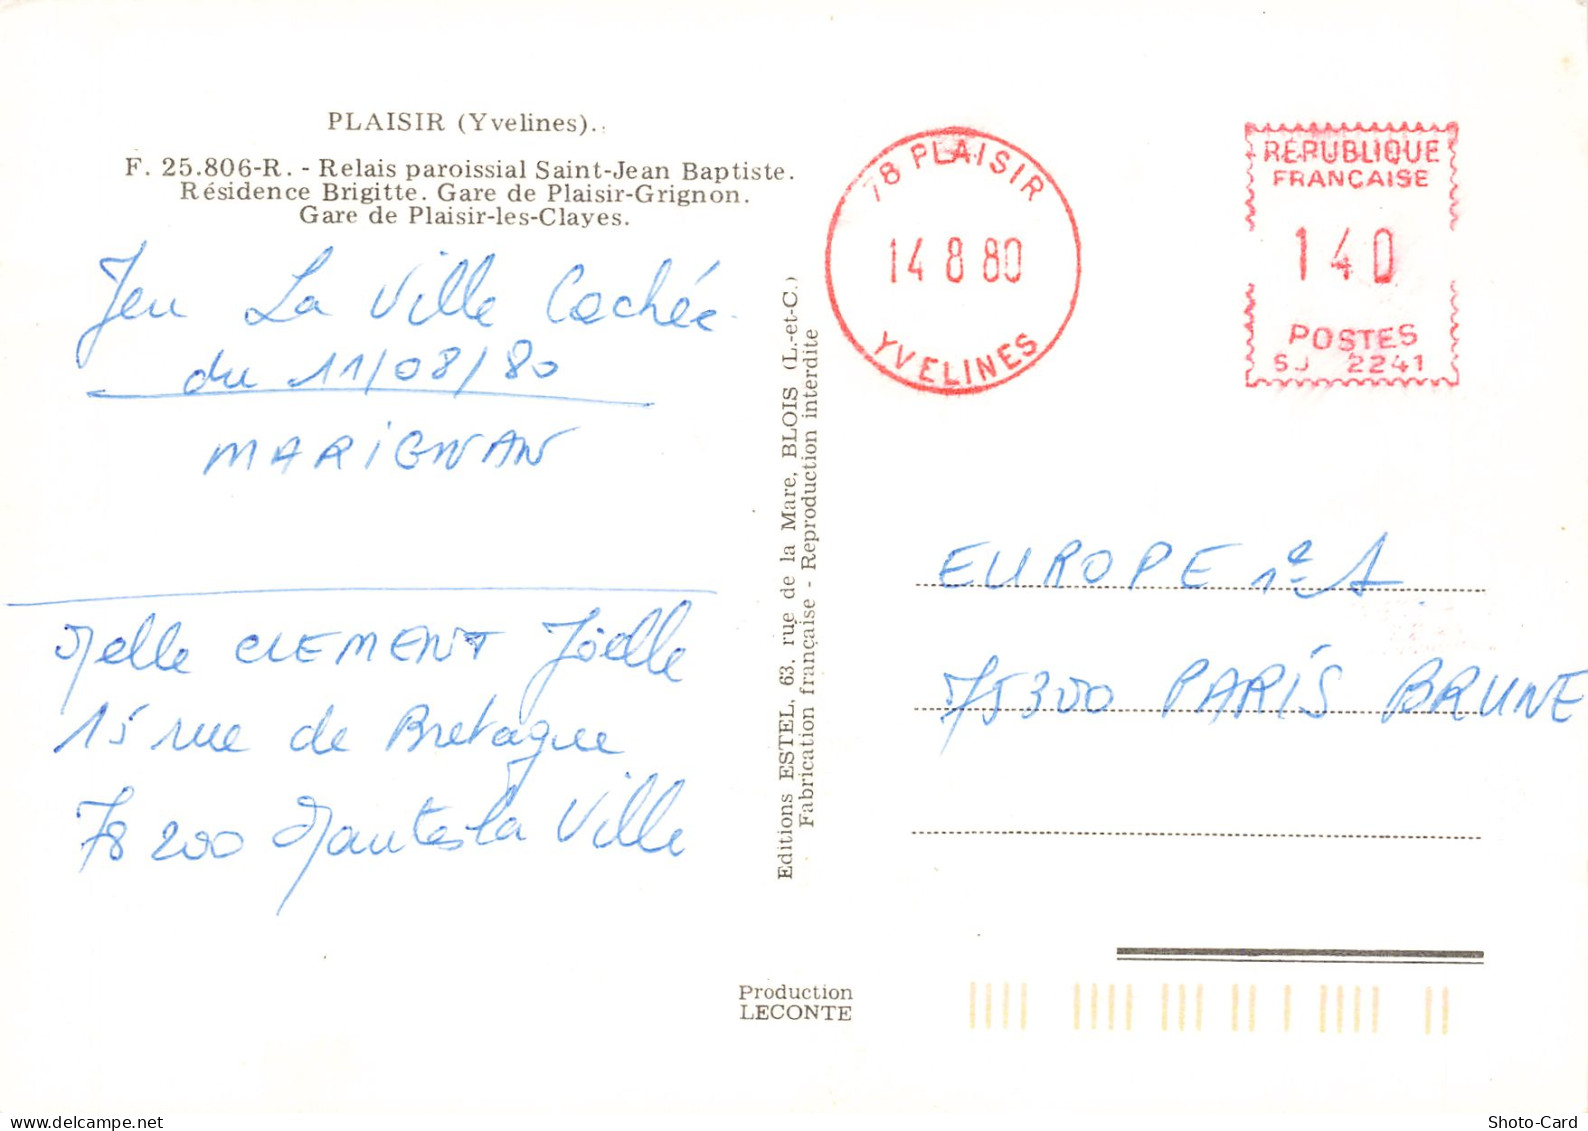 PLAISIR (Yvelines).
F. 25.806-R. - Relais paroissial Saint-Jean Baptiste.
Résidence Brigitte. Gare de Plaisir-Grignon.
Gare de Plaisir-les-Clayes.
Jeu La Ville Cachée
du 11/08/80
MARIGNAN
Melle CLEMENT Joëlle
15 rue de Bretagne
78200 Mantes la Ville
Editions ESTEL, 63, rue de la Mare, BLOIS (L.-et-C.)
Fabrication française - Reproduction interdite
Production
LECONTE
78 PLAISIR
14 8 80
YVELINES
RÉPUBLIQUE
FRANÇAISE
140
POSTES
SJ 2241
EUROPE n° 1
75300 PARIS BRUNE
Shoto-Card